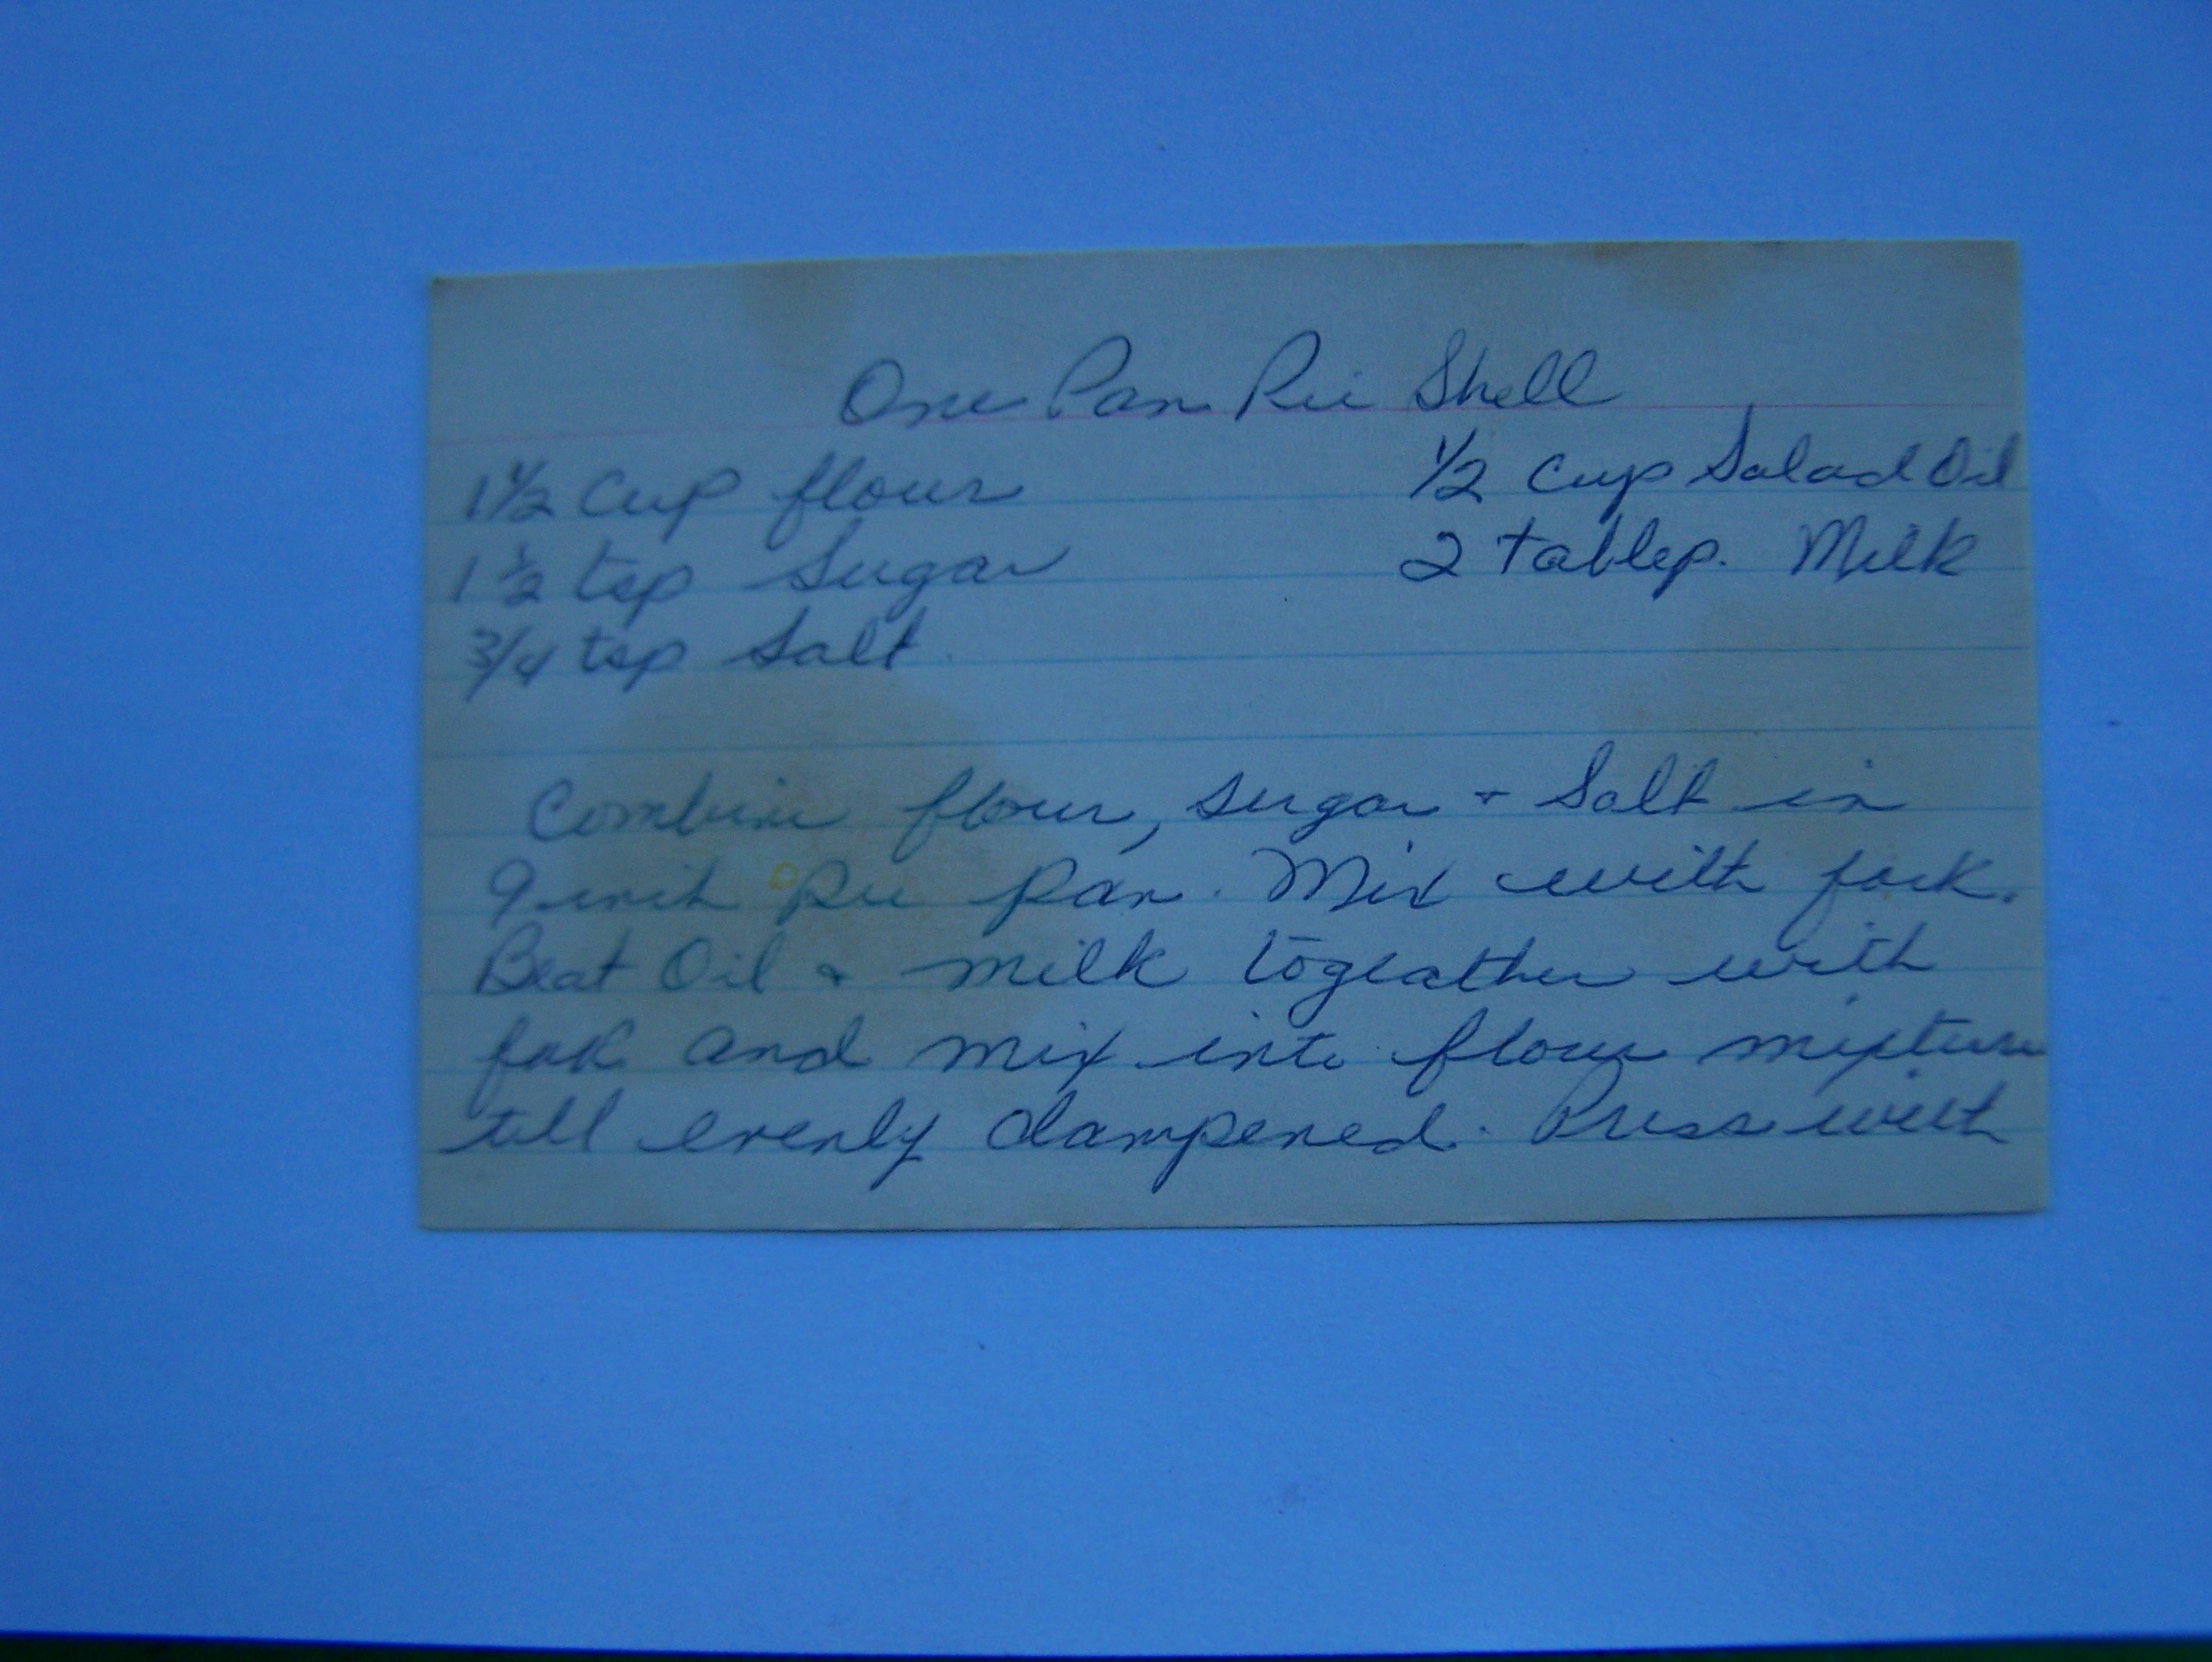 One Pan Pie Shell
1 1/2 Cup flour
1 1/2 tsp Sugar
3/4 tsp Salt
1/2 Cup Salad Oil
2 tablsp. Milk
Combine flour, sugar + Salt in
9 inch Pie Pan. Mix with fork.
Beat Oil + milk togeather with
fork and mix into flour mixture
till evenly dampened. Press with